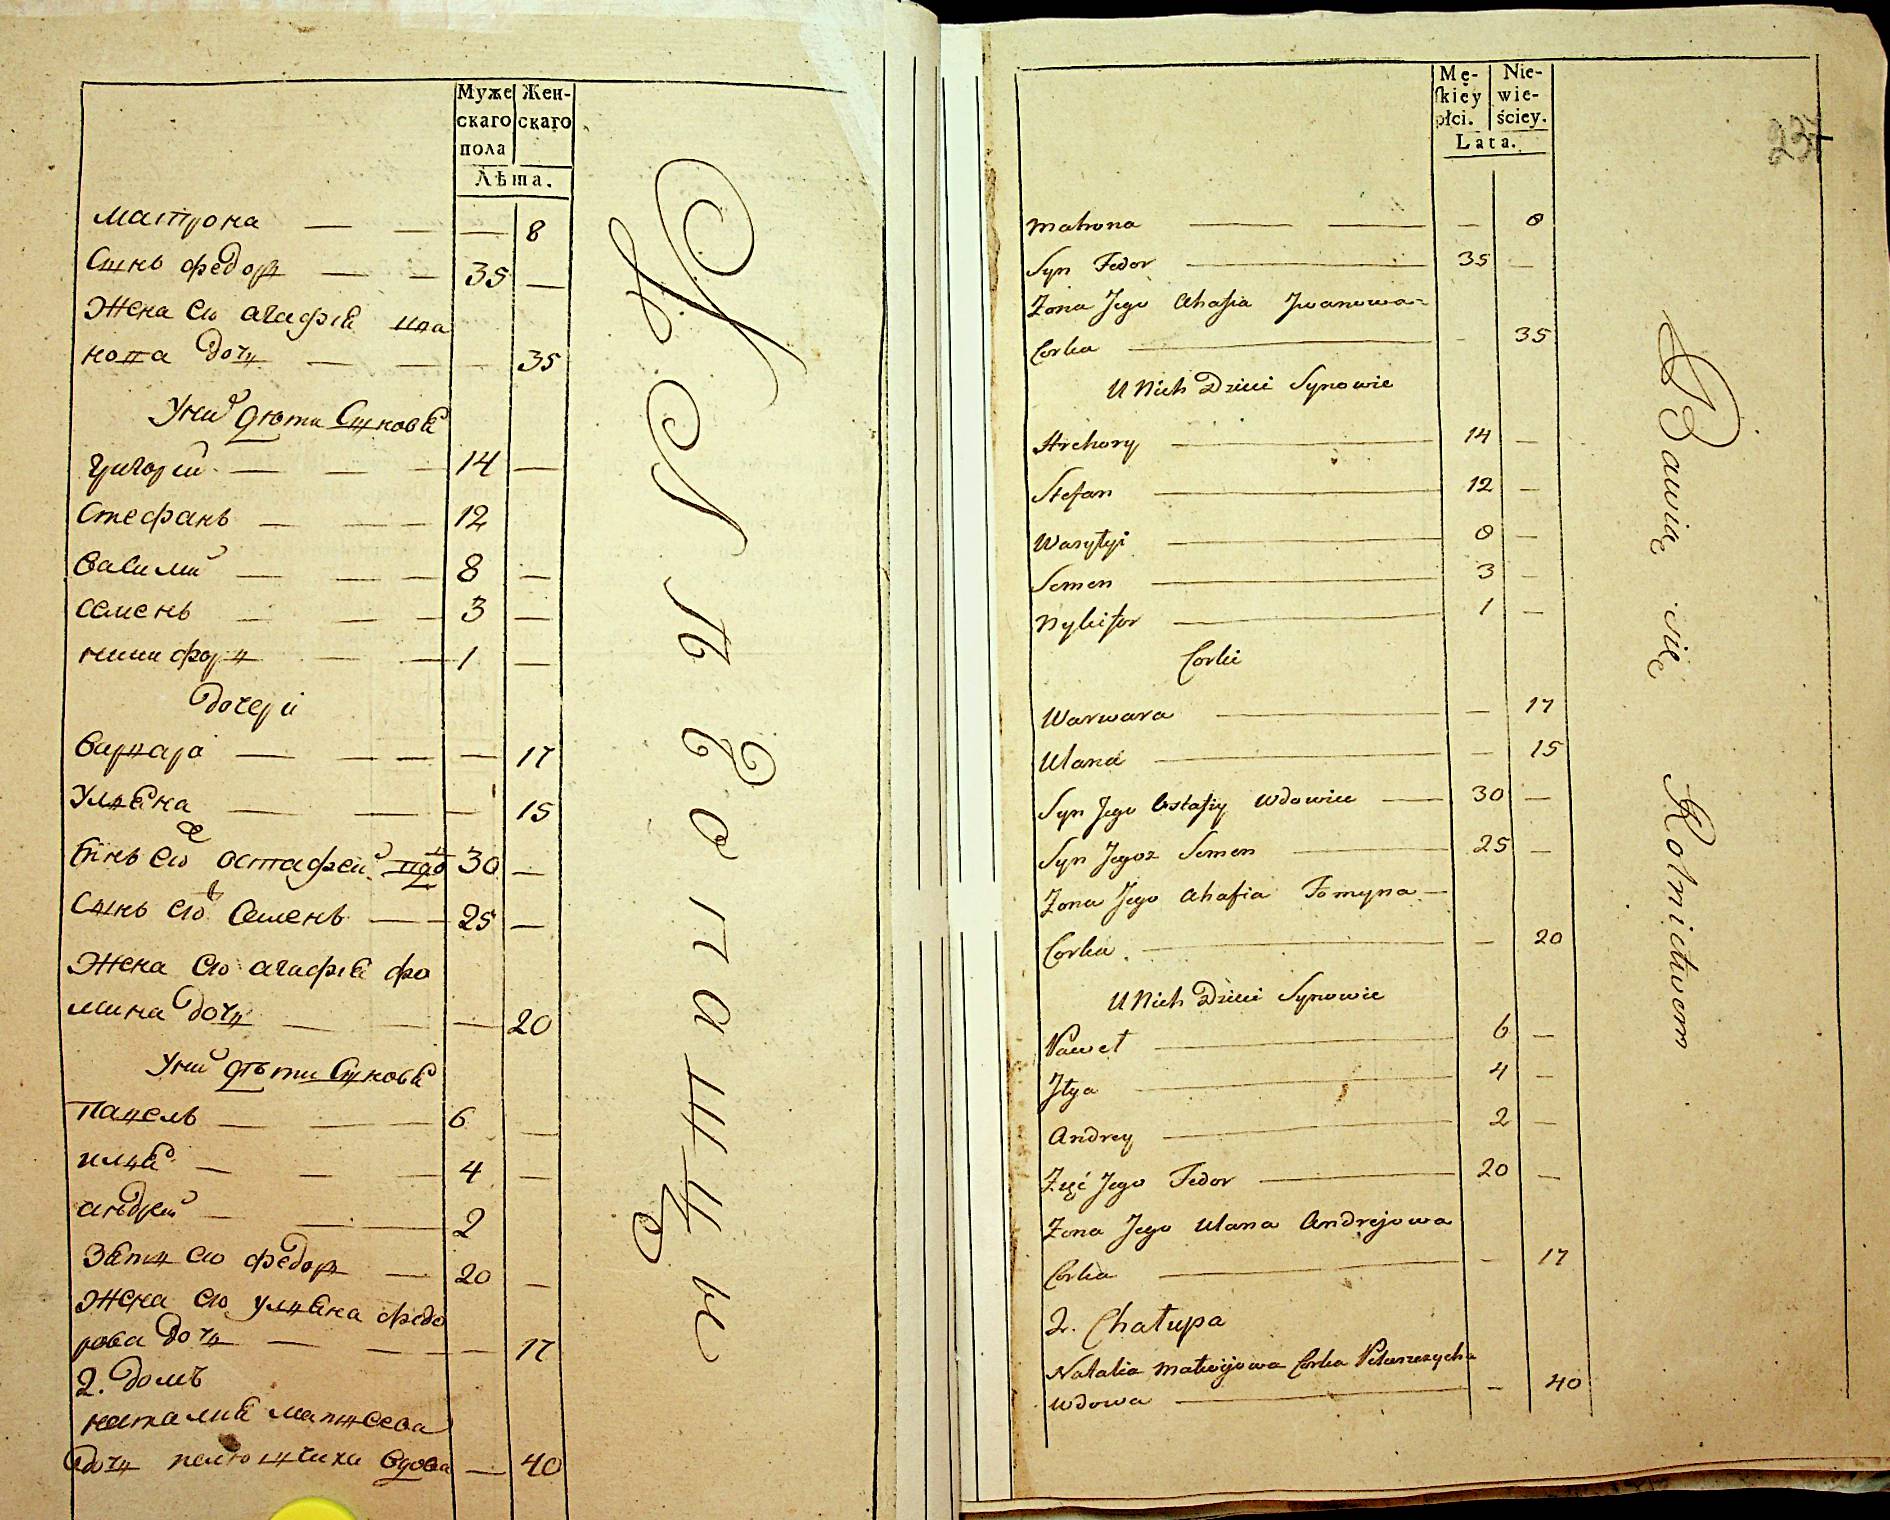 Муже
скаго
пола
Жен-
скаго
Лѣта.
Матрона — — — 8
Сынъ Федоръ — — 35 —
Жена его Агафія Ива
нова дочь — — — 35
У них дѣти Сыновья
Григорий — — — 14 —
Стефанъ — — — 12
Василий — — — 8 —
Семенъ — — — 3 —
Никифоръ — — 1 —
Дочери
Варвара — — — — 17
Ульяна — — — 15
Сынъ его Остафей 30 —
Сынъ его Семенъ — — 25 —
Жена его Агафія Фо
мина дочь — — — 20
У них дѣти Сыновья
Павелъ — — — 6 —
Илья — — — 4 —
Андрей — — 2
Зять его Федоръ — 20 —
Жена его Ульяна Федо
рова дочь — — — 17
2. домъ
Наталия Матвеева
дочь вдова — 40
Хлѣбопашцы
Mę-
skiey
płci.
Nie-
wie-
ściey.
Lata.
237
Matrona — — — 8
Syn Fedor — 35 —
Żona Jego Ahafia Jwanowa
Corka — - 35
U Nich Dzieci Synowie
Hrehory — 14 —
Stefan — 12 —
Wasyłyi — 8 —
Semen — 3 —
Nykifor — 1 —
Corki
Warwara — — 17
Ulana — — 15
Syn Jego Ostafiy Wdowiec — 30 —
Syn Jegoz Semen — 25 —
Żona Jego Ahafia Fomyna —
Corka — — 20
U Nich Dzieci Synowie
Paweł — 6 —
Jłya — 4 —
Andrey — 2 —
Zięć Jego Fedor — 20 —
Żona Jego Ulana Andrejowa
Corka — — 17
2. Chałupa
Natalia Matwijowa Corka
Wdowa — — 40
Bawią się Rolnictwem